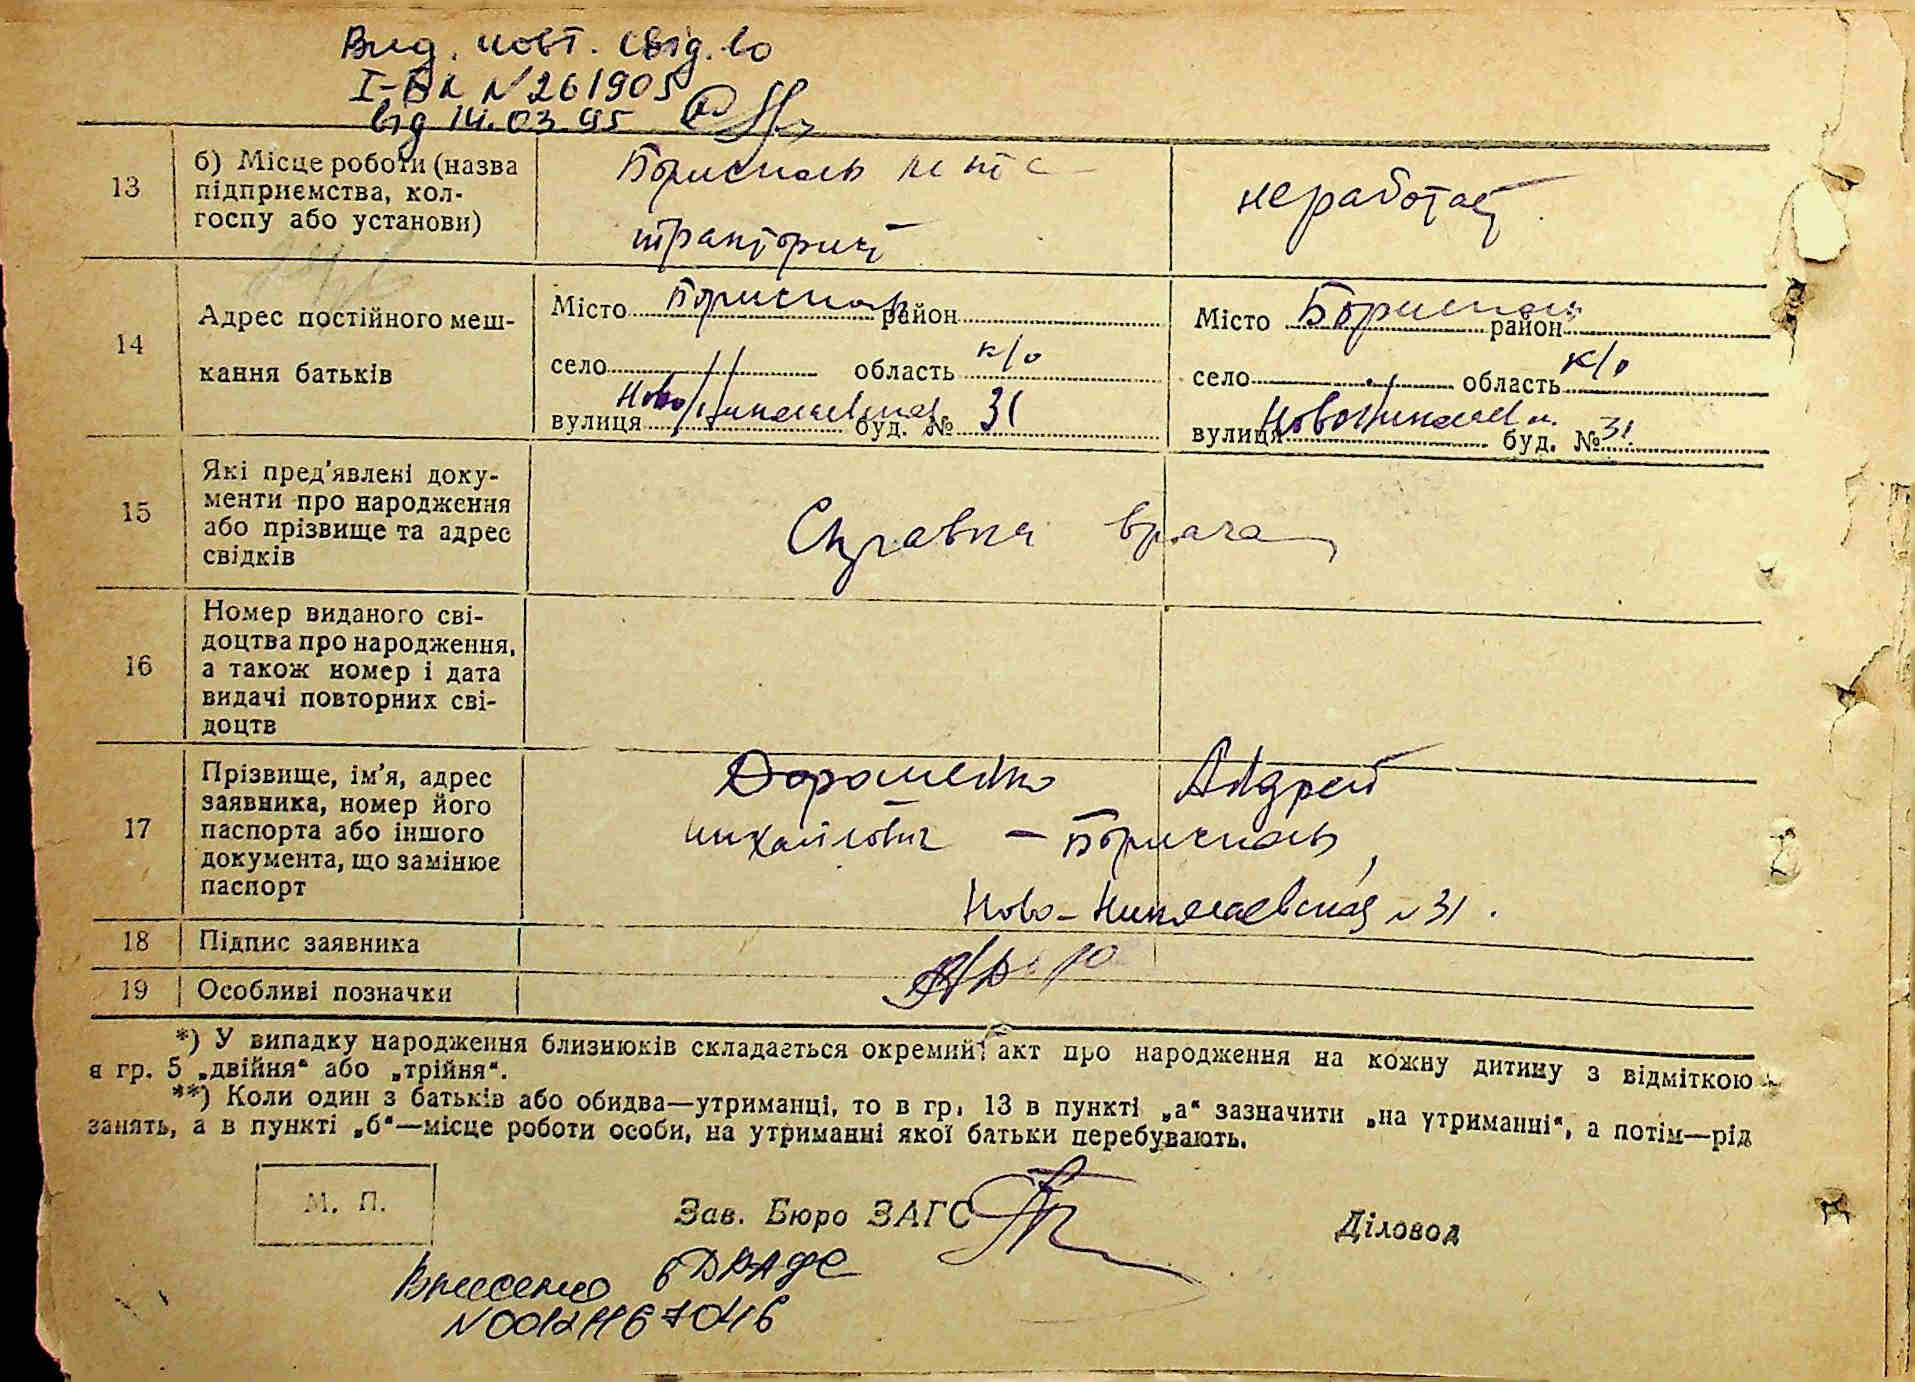 Вид. повт. свід.во
І-БК №261905
від 14.03.95
13
б) Місце роботи (назва
підприємства, кол-
госпу або установи)
Бориспол
не работает
14
Адрес постійного меш-
кання батьків
Місто Борисполь район
село область к/о
вулиця Ново Николаевская буд. № 31
Місто Борисполь район
село область к/о
вулиця Ново Николаев буд. № 31
15
Які пред'явлені доку-
менти про народження
або прізвище та адрес
свідків
Справка врача
16
Номер виданого сві-
доцтва про народження,
а також номер і дата
видачі повторних сві-
доцтв
17
Прізвище, ім'я, адрес
заявника, номер його
паспорта або іншого
документа, що замінює
паспорт
Дорошенко Андрей
Михайлович – Борисполь,
Ново-Николаевская №31.
18 Підпис заявника
19 Особливі позначки
*) У випадку народження близнюків складається окремий акт про народження на кожну дитину з відміткою
в гр. 5 „двійня“ або „трійня“.
**) Коли один з батьків або обидва—утриманці, то в гр. 13 в пункті „а“ зазначити „на утриманні“, а потім—рід
занять, а в пункті „б“—місце роботи особи, на утриманні якої батьки перебувають.
М. П.
Зав. Бюро ЗАГС
Діловод
Внесено в ДРАЦС